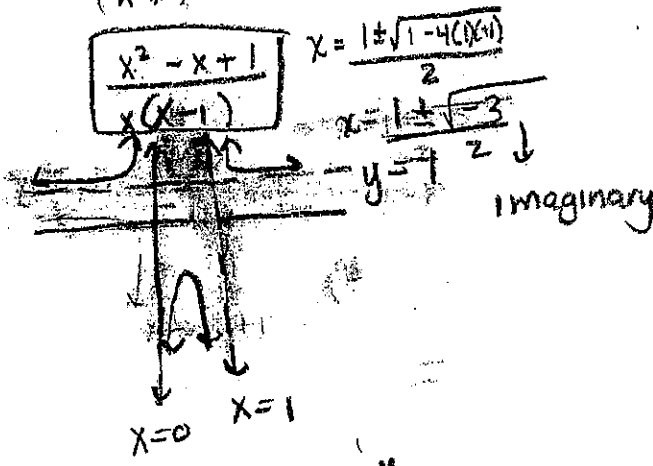 x² - x + 1
x(x-1)
x = 1 ± √1 - 4(1)(+1)
2
x = 1 ± √-3
2
↓
y = 1
imaginary
x=0
x=1